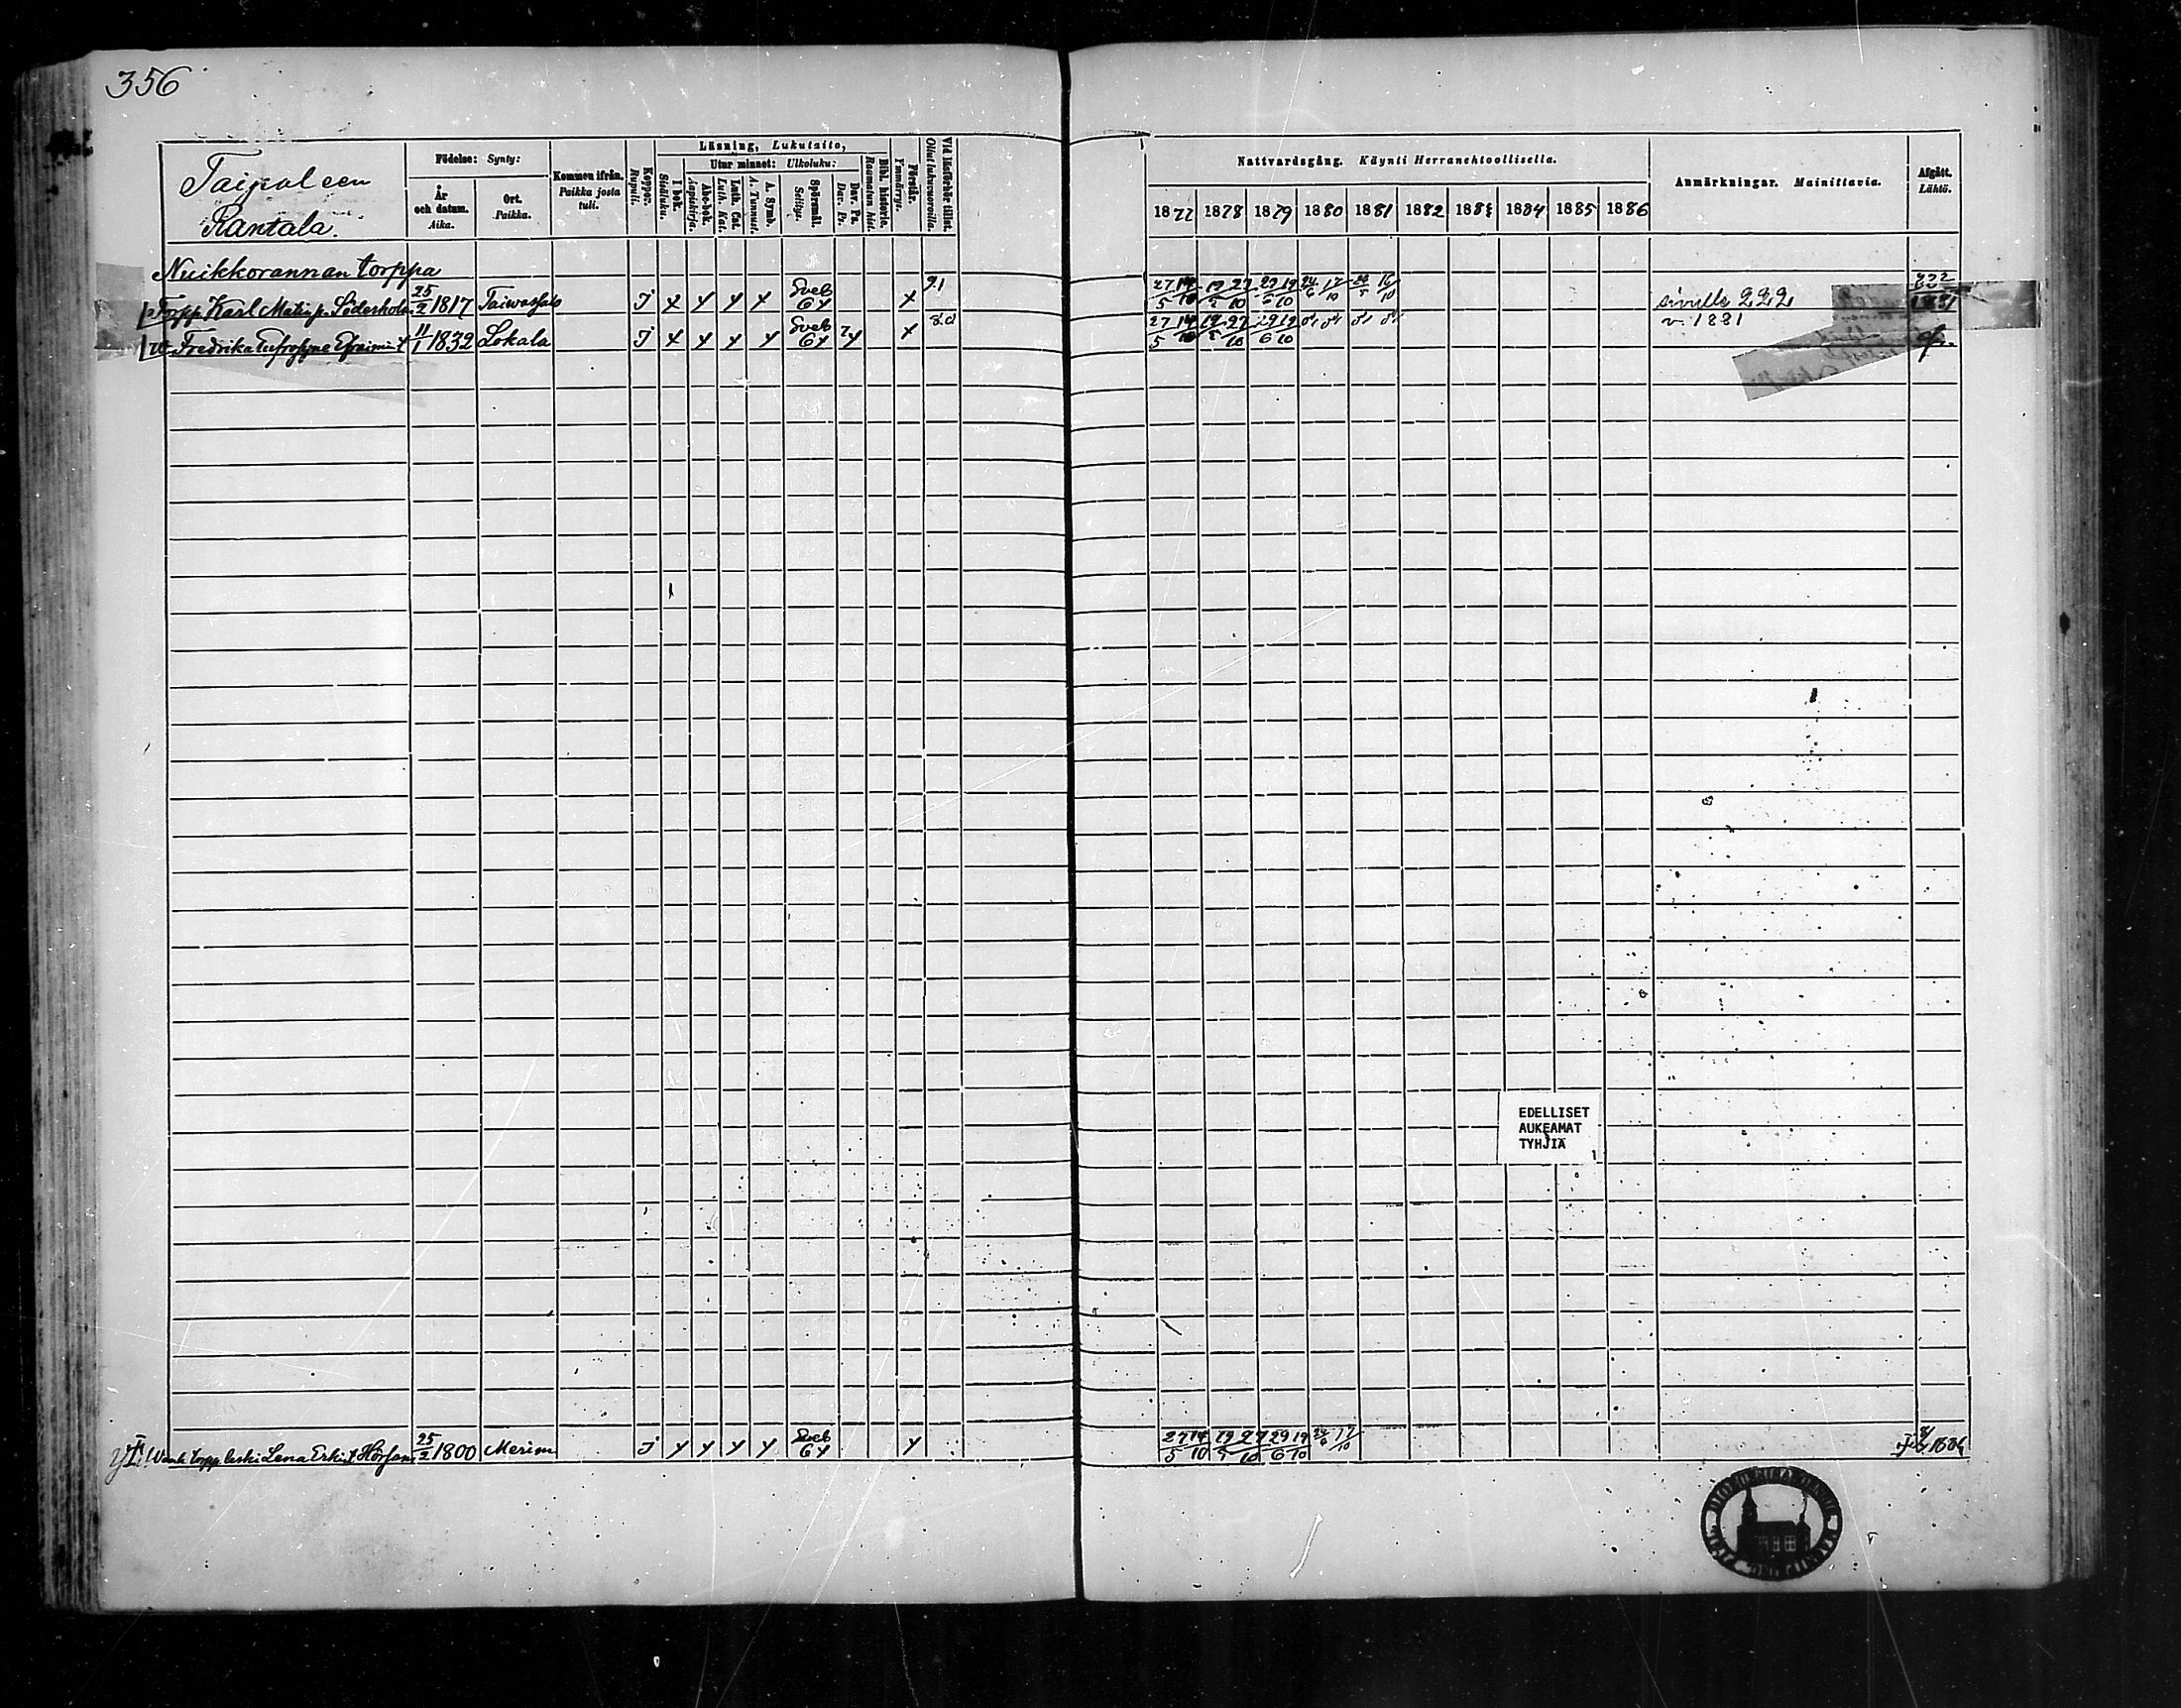 356
Taipaleen
Rantala.
Födelse: Synty:
År och datum. Aika.
Ort. Paikka.
Kommen ifrån. Paikka josta tuli.
Koppor. Rupuli.
Läsning, Lukutaito,
I bok. Sisäluku.
Utur minnet: Ulkoluku:
Abc-bok. Aapiskirja.
Luth. Cat. Luth. Kat.
A. Symb. A. Tunnust.
Spörsmål. Selitys.
Dav. Ps. Dav. Ps.
Bibl. historie. Raamatun hist.
Förstår. Ymmärrys.
Vid läsförhör tillst. Ollut lukuvuoroilla.
Nattvardsgång. Käynti Herranehtoollisella.
1877 1878 1879 1880 1881 1882 1883 1884 1885 1886
Anmärkningar. Mainittavia.
Afgått. Lähtö.
Nuikkorannan torppa
Torpp. Karl Matinp. Söderholm 25/2 1817 Taiwassalo J x y y x Sveb 6y x 91 27/5 14/10 19/5 27/10 29/6 19/10 24/6 17/10 16/10 sivulle 222 222 1881
W. Fredrika Eufrosyne Efraimint 11/1 1832 Lokala J x y y y Sveb 6y 7y x 27/5 14/10 19/5 27/10 29/6 19/10 v. 1881
EDELLISET
AUKEAMAT
TYHJIÄ
Wanh. torpp. leski Lena Erkint. 25/2 1800 Merim J y y y y Sveb 6y y 27/5 14/10 19/5 27/10 29/6 19/10 24/6 17/10